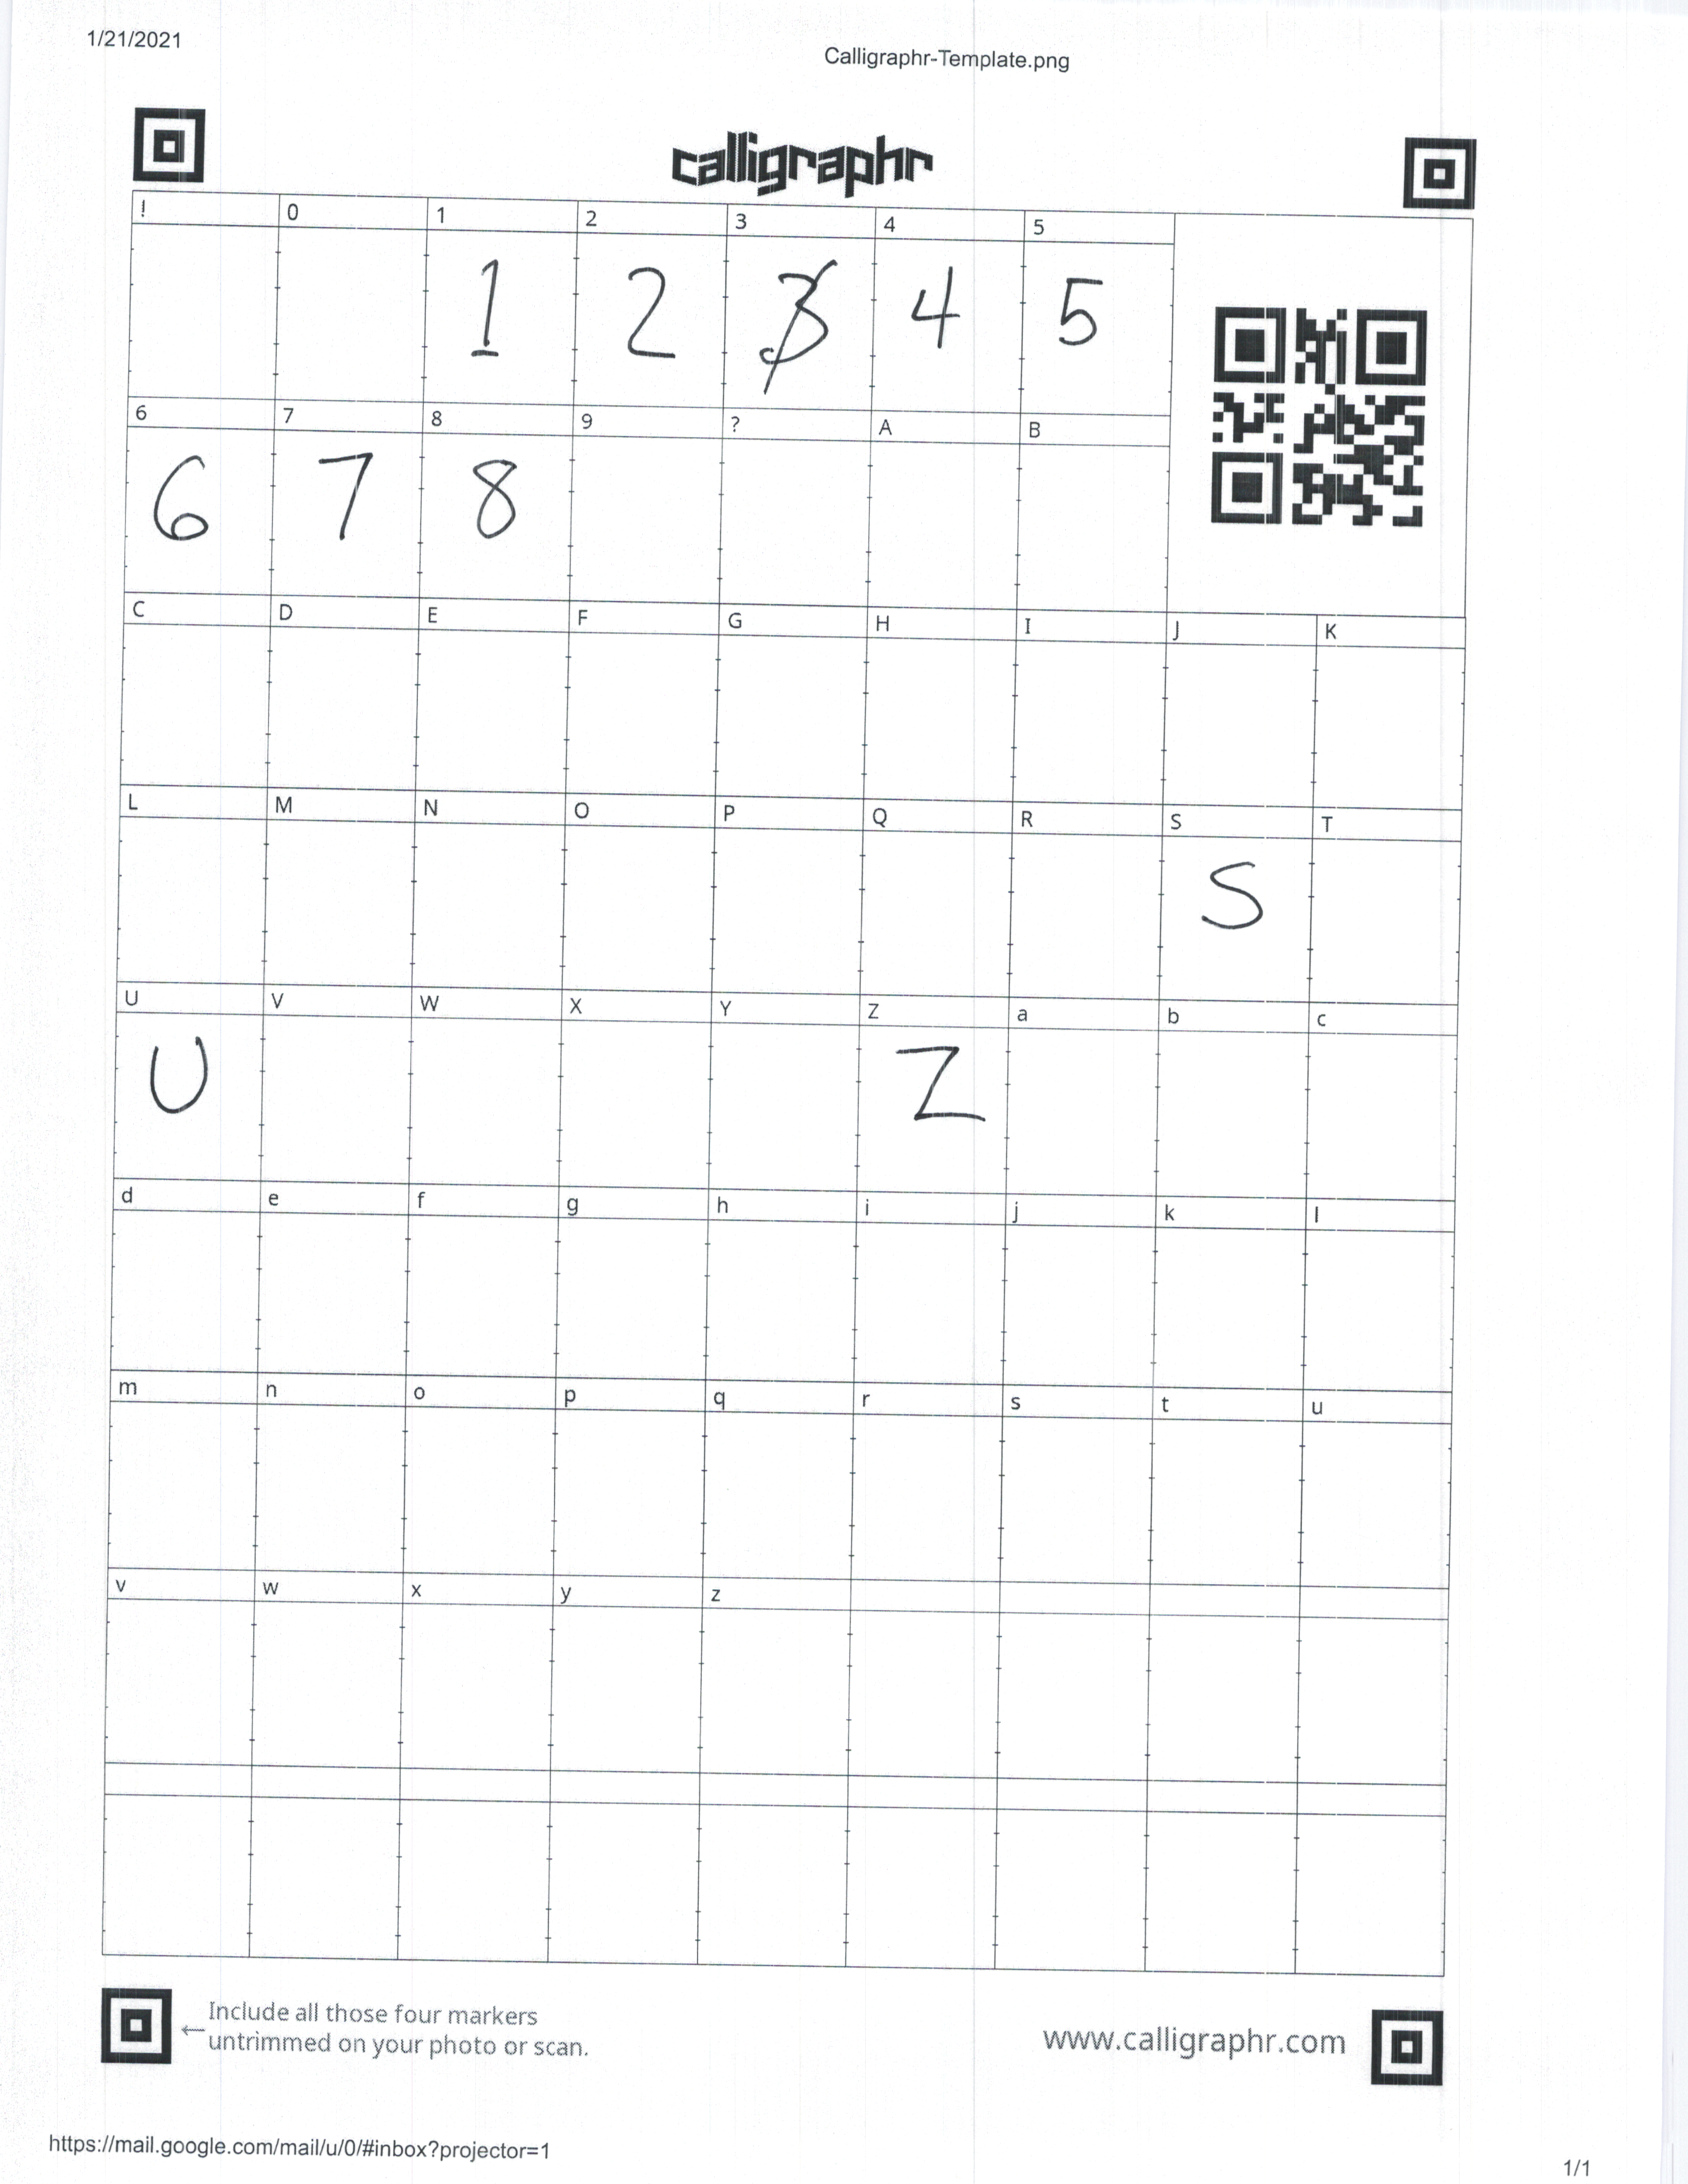 1/21/2021 Calligraphr-Template.png
calligraphr
! 0 1 2 3 4 5
1 2 3 4 5
6 7 8 9 ? A B
6 7 8
C D E F G H I J K
L M N O P Q R S T
S
U V W X Y Z a b c
U Z
d e f g h i j k l
m n o p q r s t u
v w x y z
← Include all those four markers
untrimmed on your photo or scan.
www.calligraphr.com
https://mail.google.com/mail/u/0/#inbox?projector=1 1/1